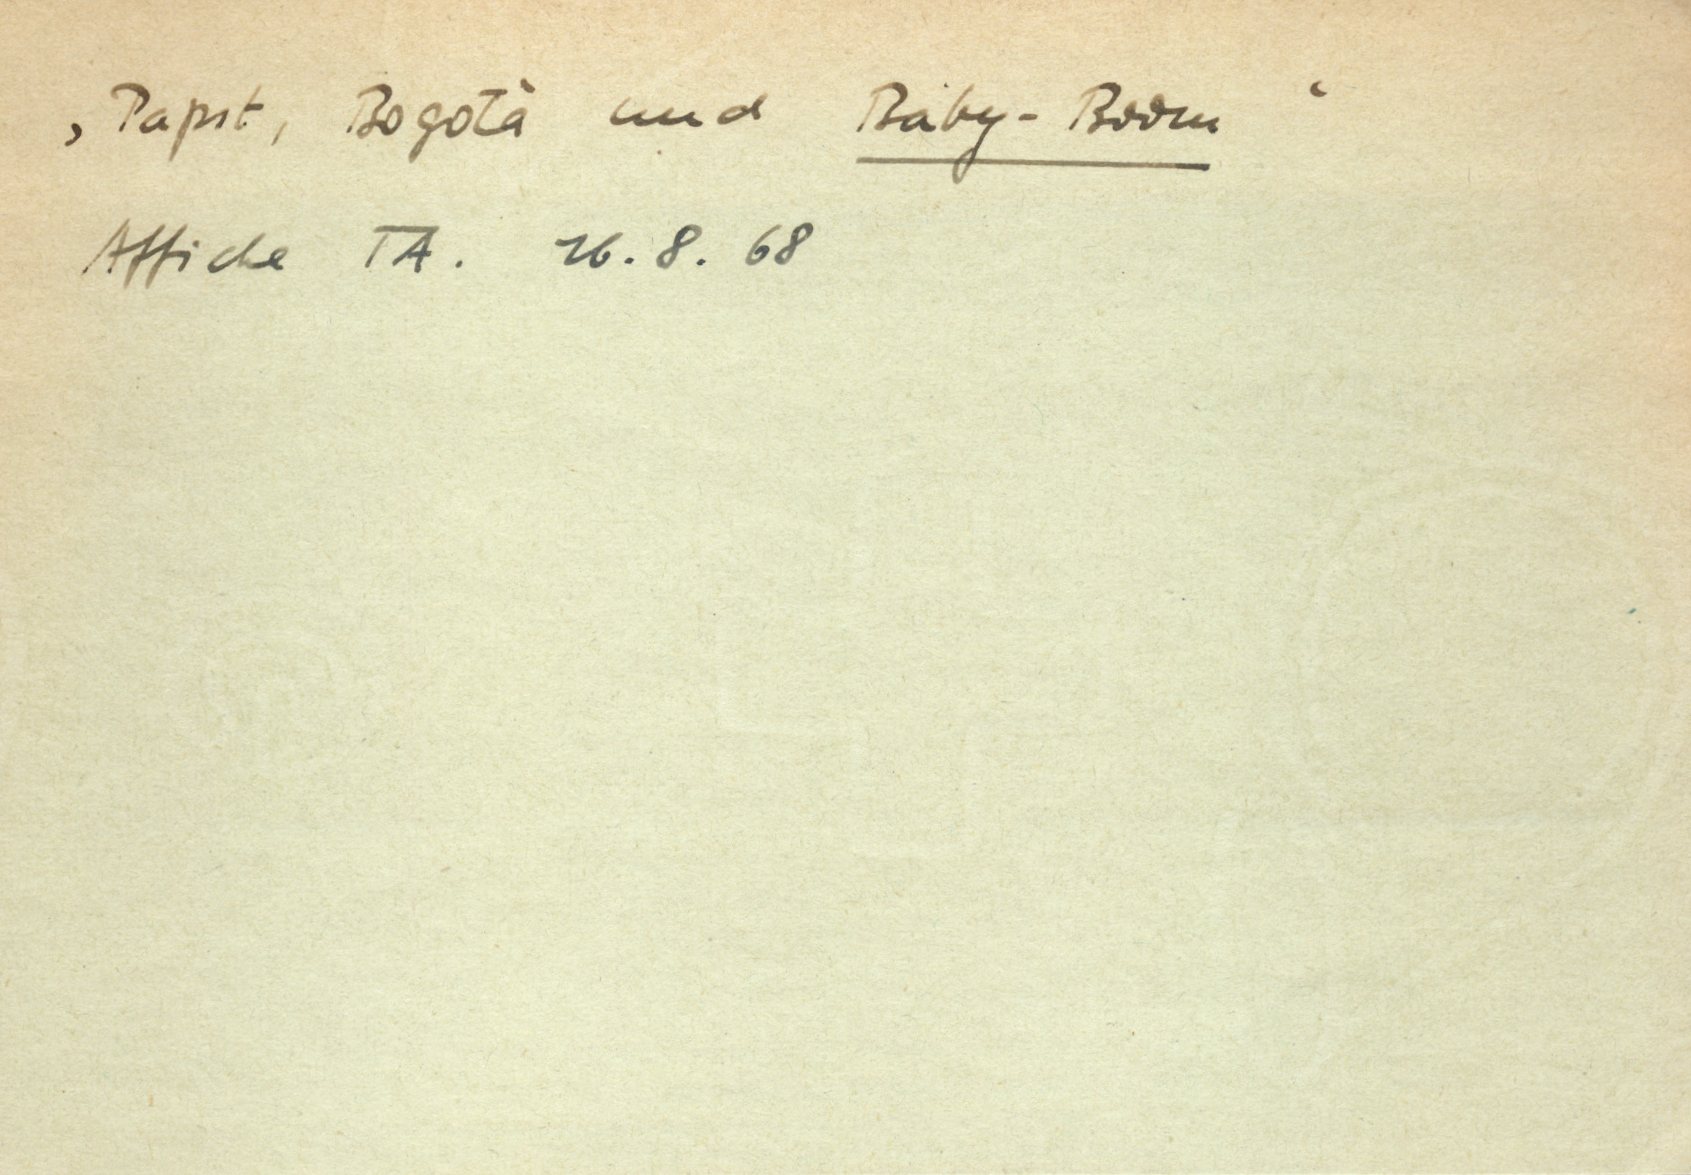 ‚Papst, Bogotà und Baby-Boom‘
Affiche TA. 26.8.68